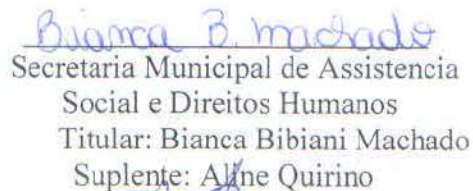 Bianca B. Machado
Secretaria Municipal de Assistencia
Social e Direitos Humanos
Titular: Bianca Bibiani Machado
Suplente: Aline Quirino